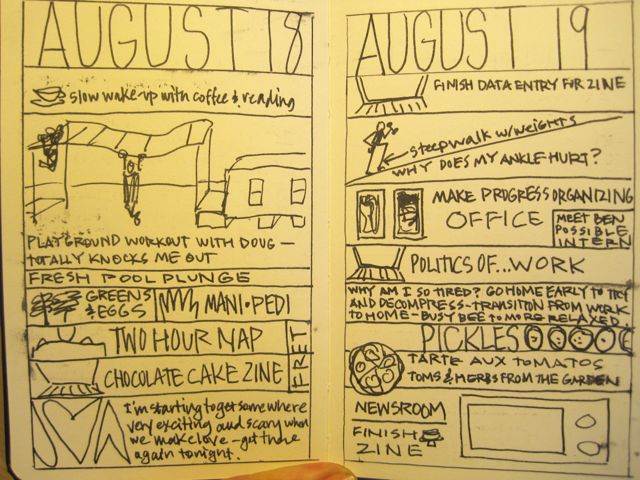 AUGUST 18
slow wake-up with coffee & reading
PLAYGROUND WORKOUT WITH DOUG —
TOTALLY KNOCKS ME OUT
FRESH POOL PLUNGE
GREENS
& EGGS
MANI•PEDI
TWO HOUR NAP
FRET
CHOCOLATE CAKE ZINE
I'm starting to get somewhere
very exciting and scary when
we make love – get there
again tonight.
AUGUST 19
FINISH DATA ENTRY FOR ZINE
STEEP WALK W/WEIGHTS
WHY DOES MY ANKLE HURT?
MAKE PROGRESS ORGANIZING
OFFICE
MEET BEN
POSSIBLE
INTERN
POLITICS OF...WORK
WHY AM I SO TIRED? GO HOME EARLY TO TRY
AND DECOMPRESS – TRANSITION FROM WORK
TO HOME – BUSY BEE TO MORE RELAXED
PICKLES
TARTE AUX TOMATOS
TOMS & HERBS FROM THE GARDEN
NEWSROOM
FINISH
ZINE